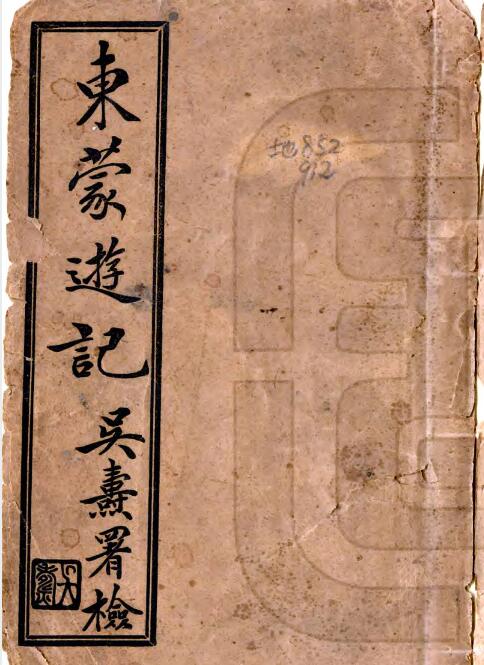 東蒙遊記
吳燾署檢
地852
912